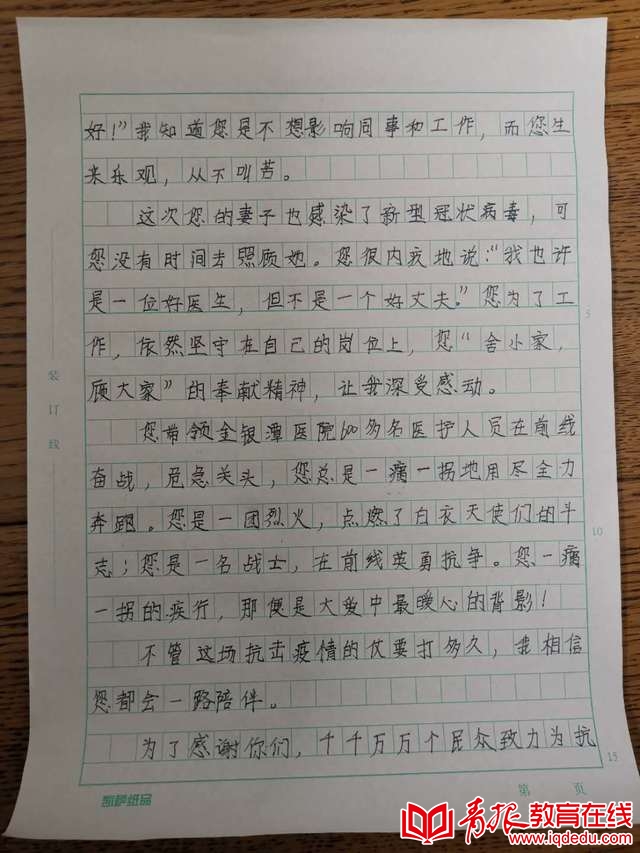 好！”我知道您是不想影响同事和工作，而您生
来乐观，从不叫苦。
这次您的妻子也感染了新型冠状病毒，可
您没有时间去照顾她。您很内疚地说：“我也许
是一位好医生，但不是一个好丈夫。”您为了工
作，依然坚守在自己的岗位上，您“舍小家，
顾大家”的奉献精神，让我深受感动。
您带领金银潭医院600多名医护人员在前线
奋战，危急关头，您总是一瘸一拐地用尽全力
奔跑。您是一团烈火，点燃了白衣天使们的斗
志；您是一名战士，在前线英勇抗争。您一瘸
一拐的疾行，那便是大爱中最暖心的背影！
不管这场抗击疫情的仗要打多久，我相信
您都会一路陪伴。
为了感谢你们，千千万万个民众致力为抗
装
订
线
5
10
15
凯萨纸品
第 页
青报教育在线
www.iqdedu.com